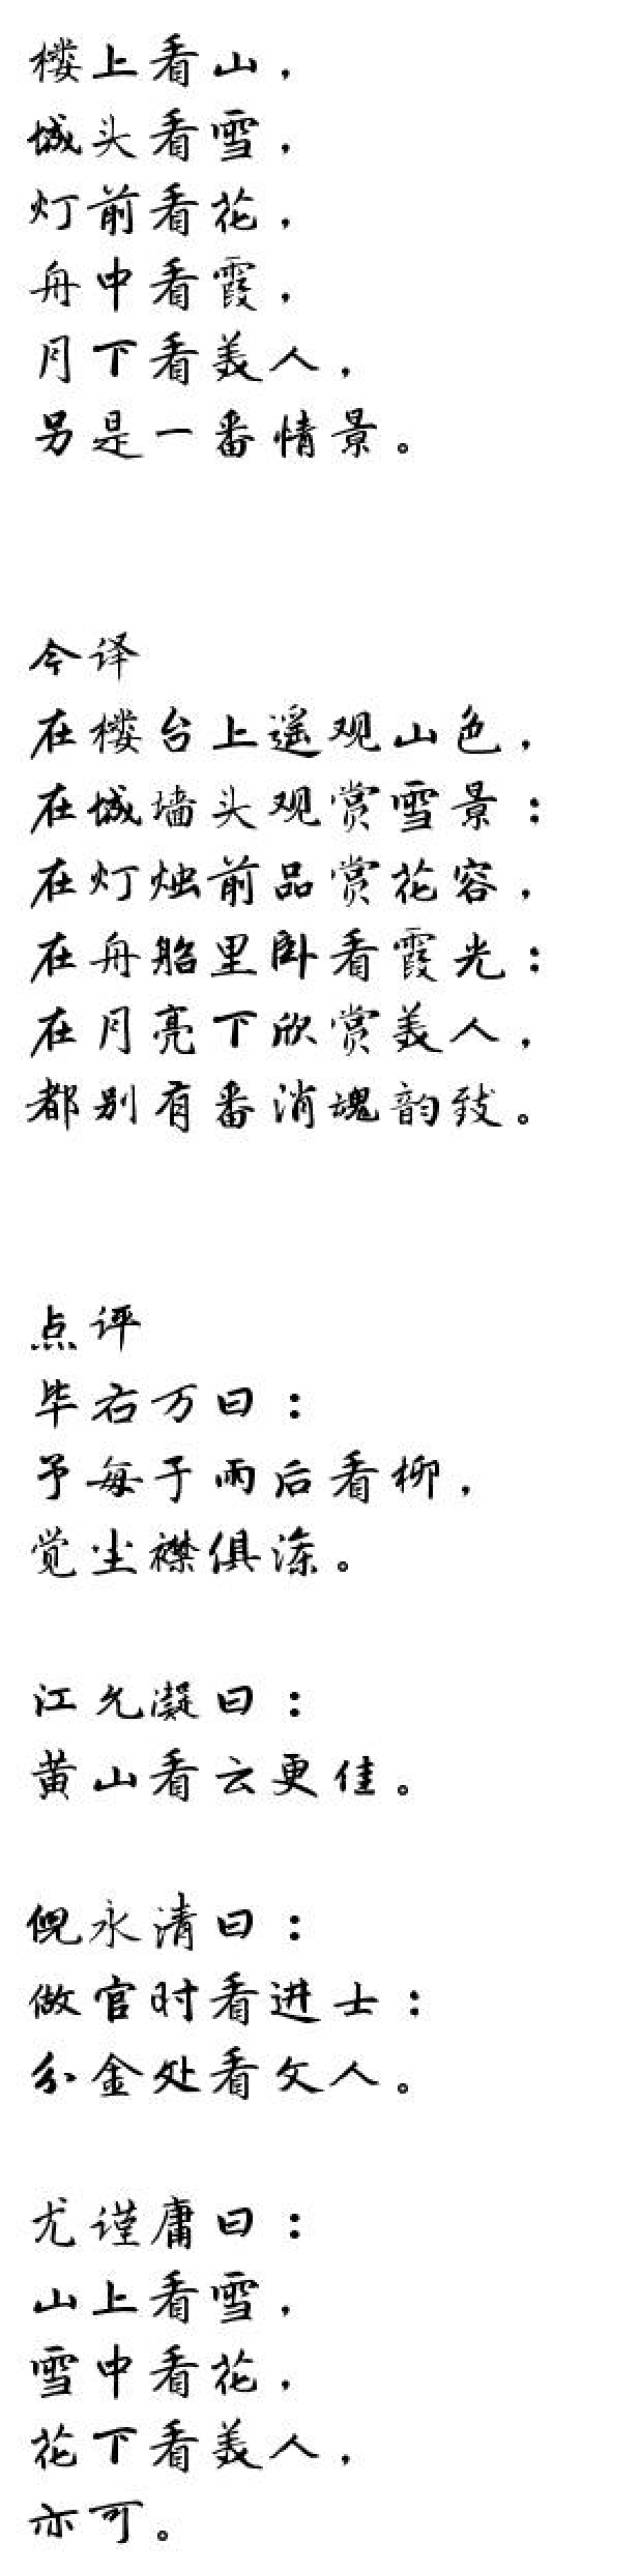 楼上看山，
城头看雪，
灯前看花，
舟中看霞，
月下看美人，
另是一番情景。
今译
在楼台上遥观山色，
在城墙头观赏雪景：
在灯烛前品赏花容，
在舟船里卧看霞光：
在月亮下欣赏美人，
都别有番消魂韵致。
点评
毕右万曰：
予每于雨后看柳，
觉尘襟俱涤。
江允凝曰：
黄山看云更佳。
倪永清曰：
做官时看进士：
分金处看文人。
尤谨庸曰：
山上看雪，
雪中看花，
花下看美人，
亦可。